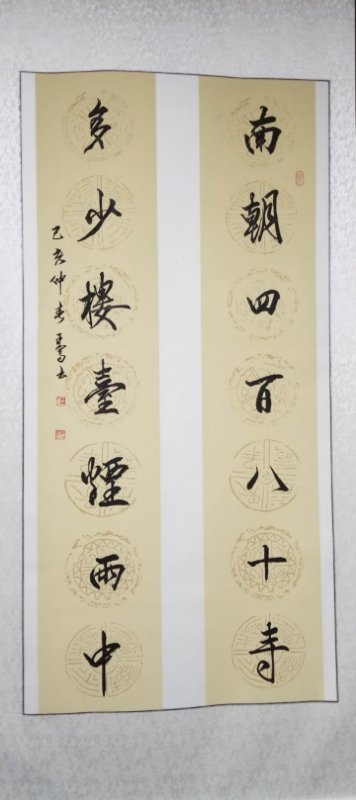 南朝四百八十寺
多少樓臺煙雨中
己亥仲春